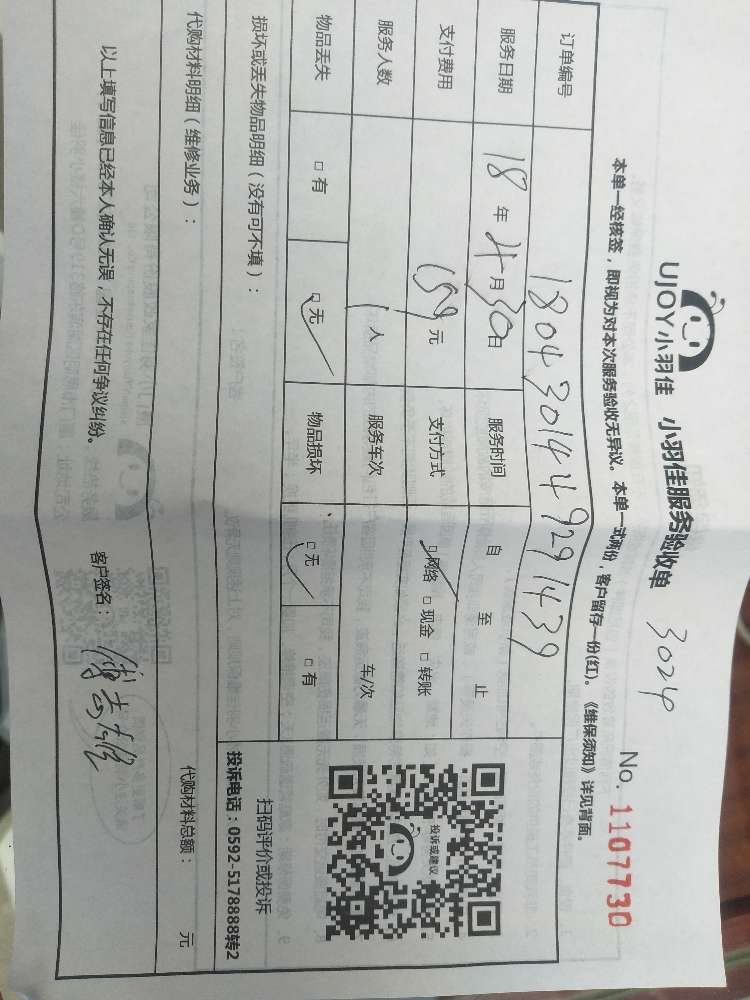 UJOY小羽佳 小羽佳服务验收单 3024
No. 1107730
本单一经核签，即视为对本次服务验收无异议。本单一式两份，客户留存一份(红)。《维保须知》详见背面。
订单编号 1804301449291439
服务日期 18 年 4 月 30 日 服务时间 自 至 止
支付费用 159 元 支付方式 □网络 □现金 □转账
服务人数 1 人 服务车次 车/次
物品丢失 □有 □无 物品损坏 □无 □有
投诉或建议
扫码评价或投诉
投诉电话：0592-5178888转2
损坏或丢失物品明细（没有可不填）：
代购材料明细（维修业务）： 代购材料总额： 元
以上填写信息已经本人确认无误，不存在任何争议纠纷。 客户签名：